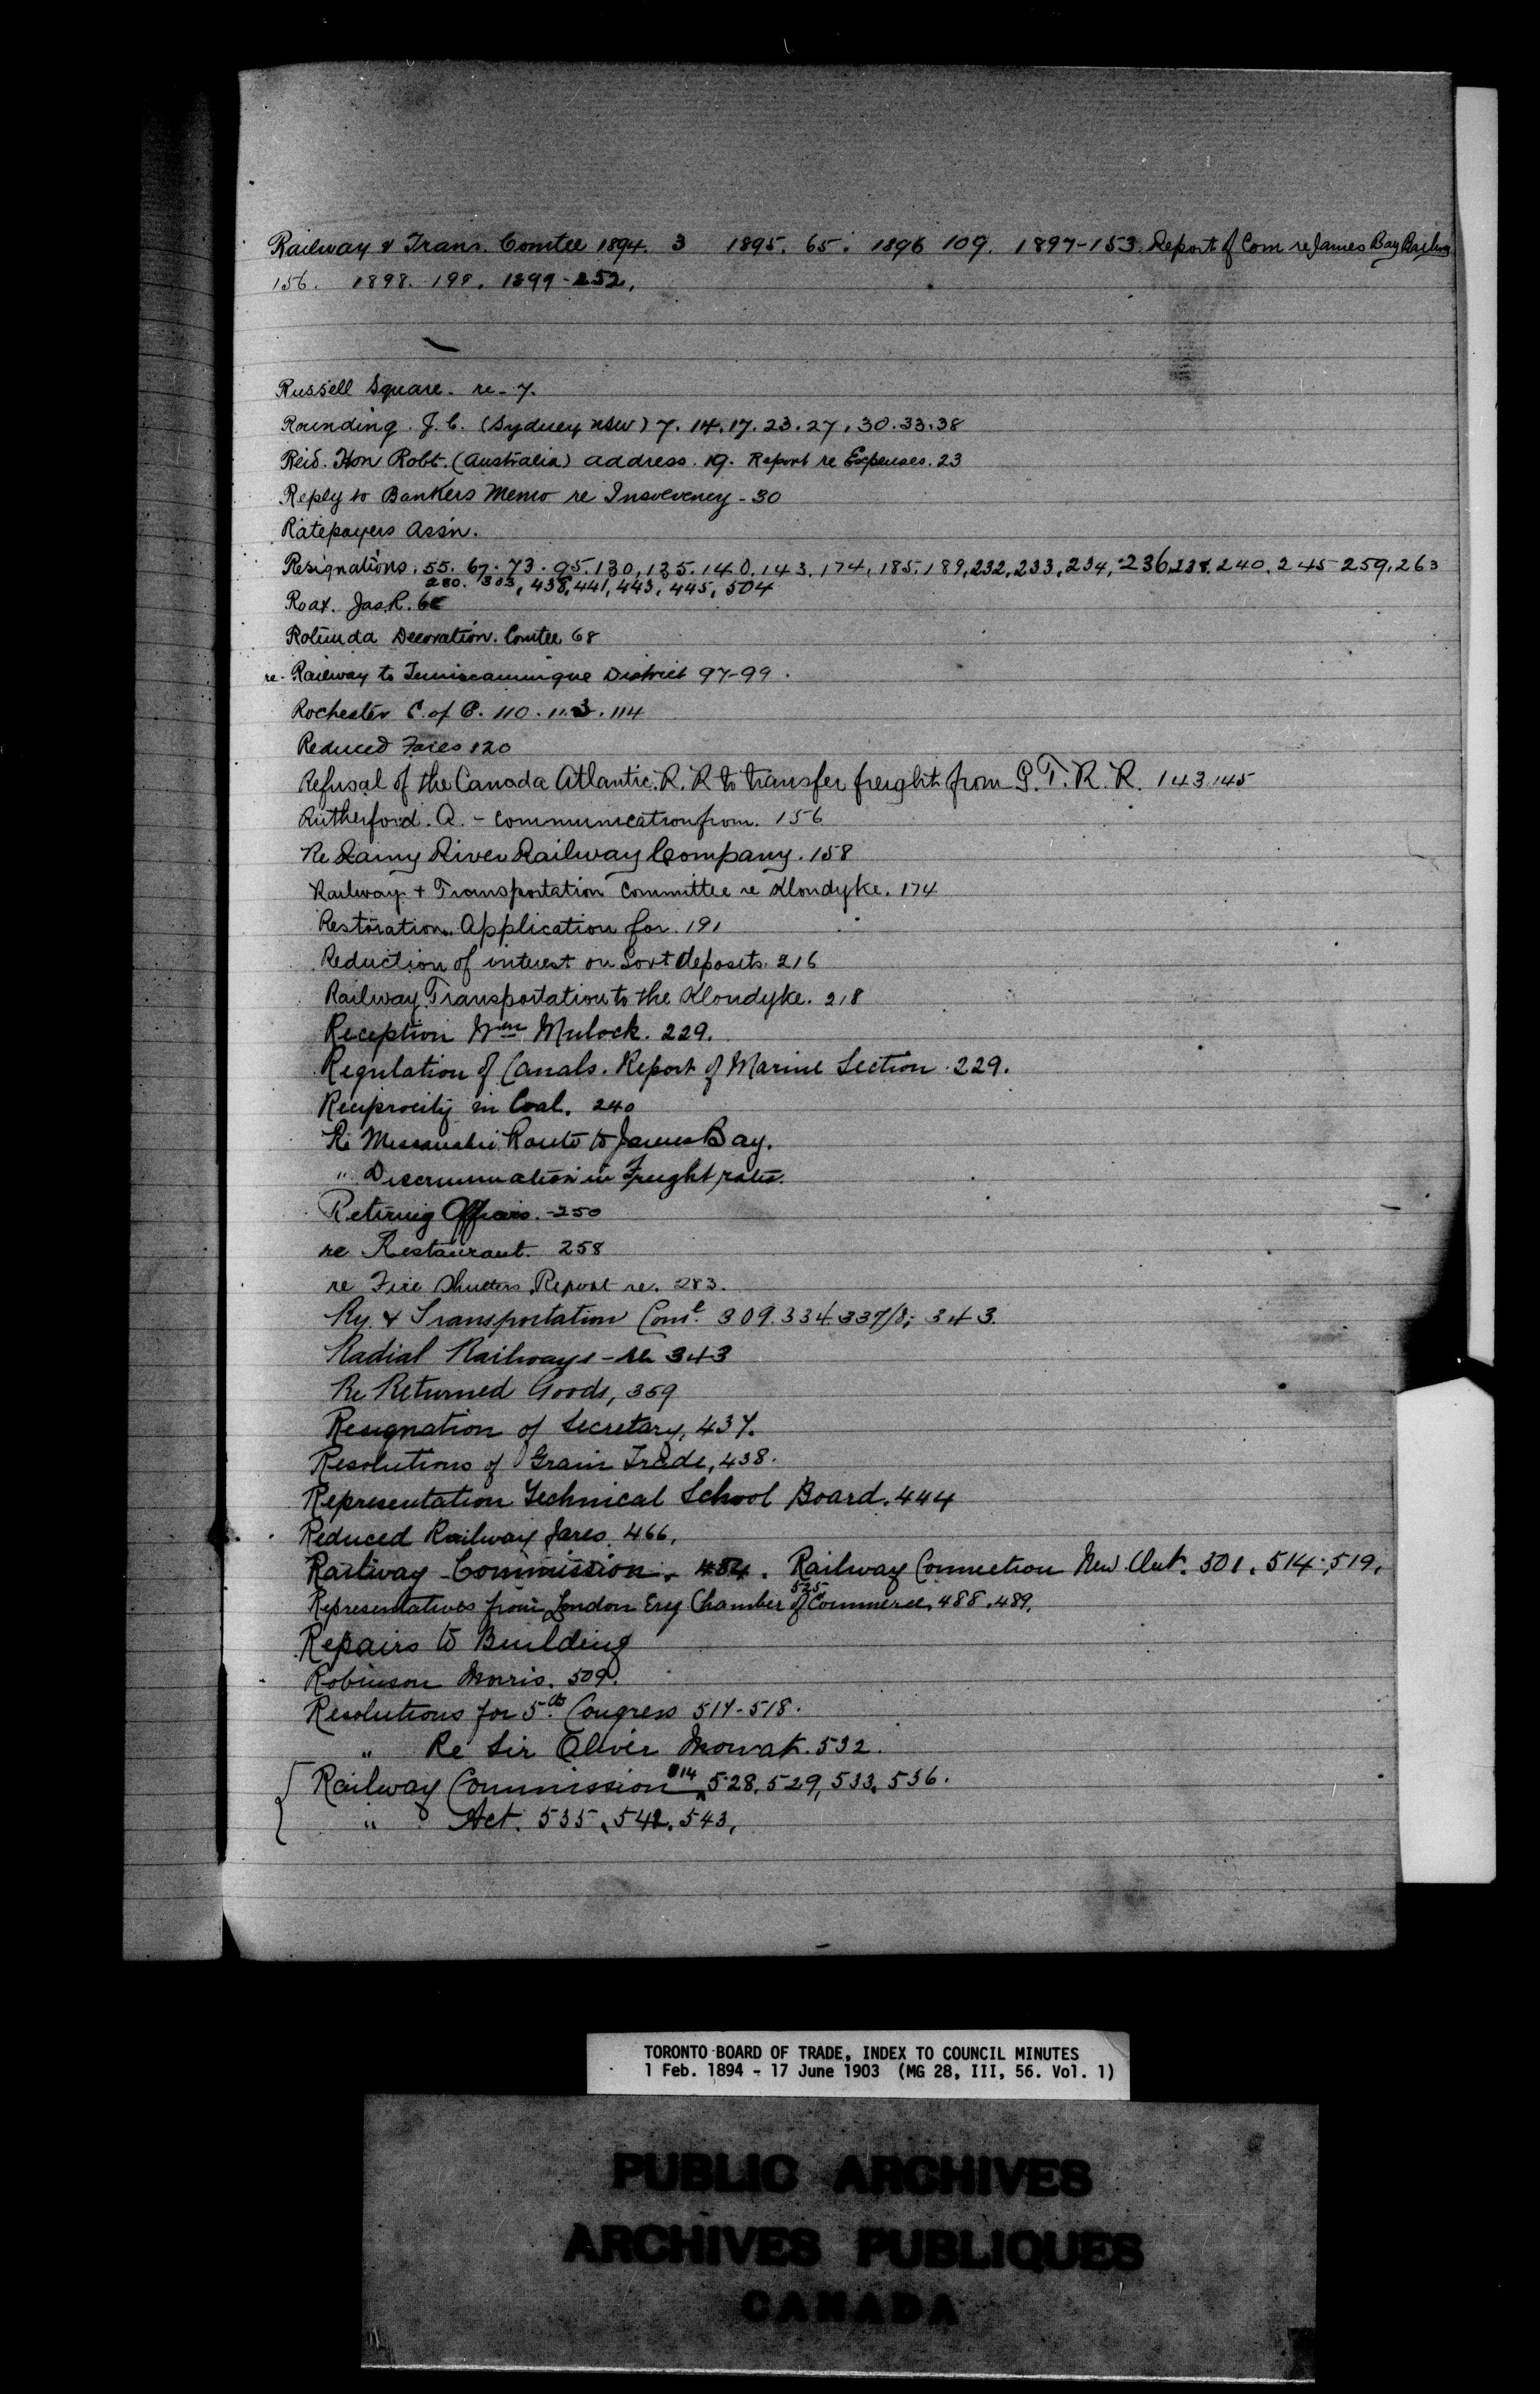 Railway & Trans. Comtee 1894. 3 1895. 65. 1896 109. 1897-153. Report of Com re James Bay Railway
156. 1898. 199. 1899-252.
Russell Square. re-7.
Rounding. J. C. (Sydney NSW) 7. 14. 17. 23. 27. 30. 33. 38
Reid. Hon Robt. (Australia) address. 19. Report re Expenses. 23
Reply to Bankers Memo re Insolvency - 30
Ratepayers Assn.
Resignations. 55. 67. 73. 95. 130, 135. 140. 143. 174, 185. 189, 232, 233, 234, 236, 238. 240. 245 259. 263
280. 303, 438, 441, 443, 445, 504
Roaf. Jas. R.
Rotunda Decoration. Comtee 68
re- Railway to Temiscamingue District 97-99.
Rochester C. of C. 110. 113. 114
Reduced Fares 120
Refusal of the Canada Atlantic. R. R to transfer freight from G. T. R. R. 143. 145
Rutherford. A. - Communication from. 156
Re Rainy River Railway Company. 158
Railway + Transportation Committee re Klondyke. 174
Restoration. Application for. 191
Reduction of interest on Govt deposits. 216
Railway Transportation to the Klondyke. 218
Reception Wm Mulock. 229.
Regulation of Canals. Report of Marine Section. 229.
Reciprocity in Coal. 240
Re Route to James Bay.
" Discrimination in Freight rates.
Retiring Officers. -250
re Restaurant. 258
re Fire Shutters Report re. 283.
Ry. & Transportation Come. 309. 334. 337/8; 343.
Radial Railways - re 343
Re Returned Goods, 359
Resignation of Secretary, 437.
Resolutions of Grain Trade, 438.
Representation Technical School Board. 444
Reduced Railway fares. 466.
Railway Commission. 484. Railway Connection New Ont. 501. 514; 519,
525
Representatives from London Eng Chamber of Commerce, 488. 489.
Repairs to Building
Robinson Morris. 509.
Resolutions for 5th Congress 517-518.
" Re Sir Oliver Mowat. 532.
Railway Commission 514 528, 529, 533, 536.
" Act. 535, 542. 543,
TORONTO BOARD OF TRADE, INDEX TO COUNCIL MINUTES
1 Feb. 1894 - 17 June 1903 (MG 28, III, 56. Vol. 1)
PUBLIC ARCHIVES
ARCHIVES PUBLIQUES
CANADA